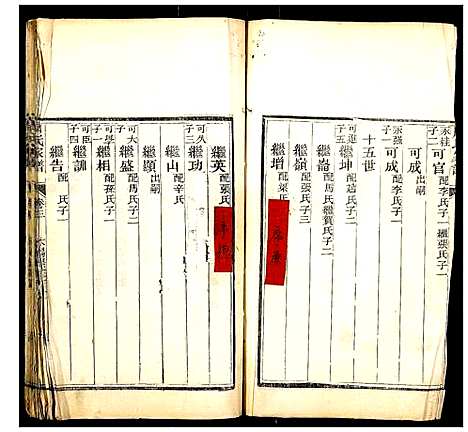 永桂子二 可官 配李氏子一繼張氏子一
可成 出嗣
永強子一 可成 配李氏子二
十五世
可進子五 繼坤 配趙氏子二
繼崙 配馬氏繼賀氏子二
繼嶺 配張氏子三
繼增 配梁氏子一
繼英 配張氏
可久子三 繼功
繼山 配辛氏
繼顯 出嗣
可大子一 繼盛 配馬氏子三
可臣子四 繼相 配孫氏子一
繼訓
繼告 配 氏子一
卷三